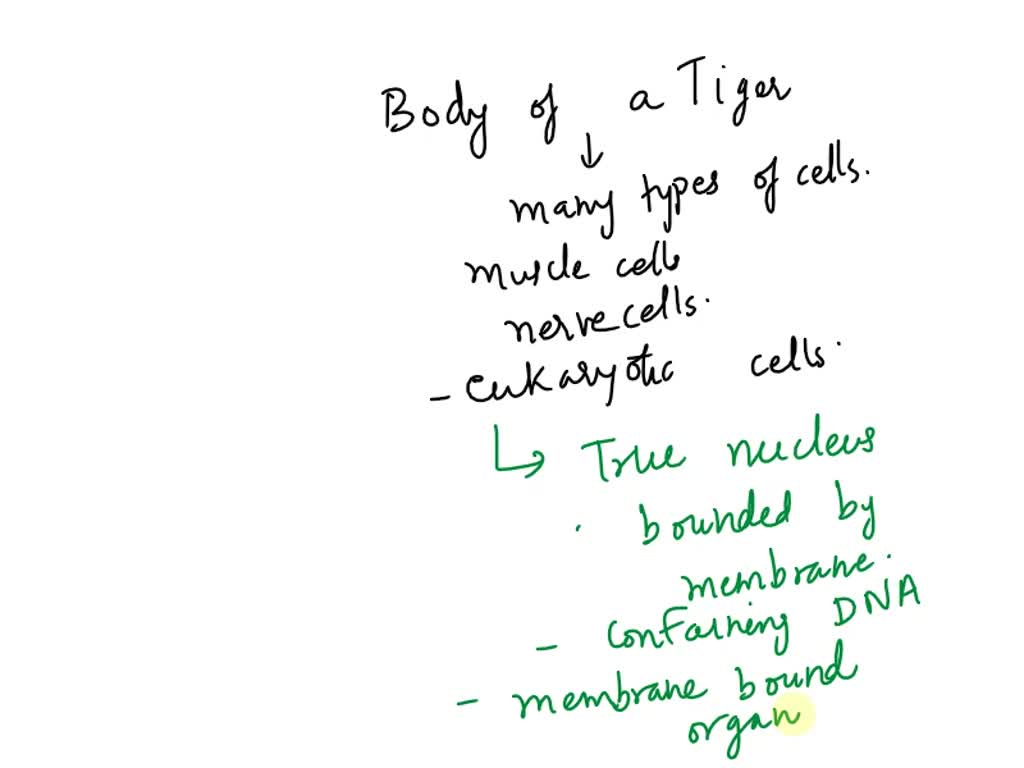 Body of a Tiger
↓
many types of cells.
muscle cells
nerve cells.
- eukaryotic cells.
↳ True nucleus
. bounded by
membrane.
- containing DNA
- membrane bound
organ